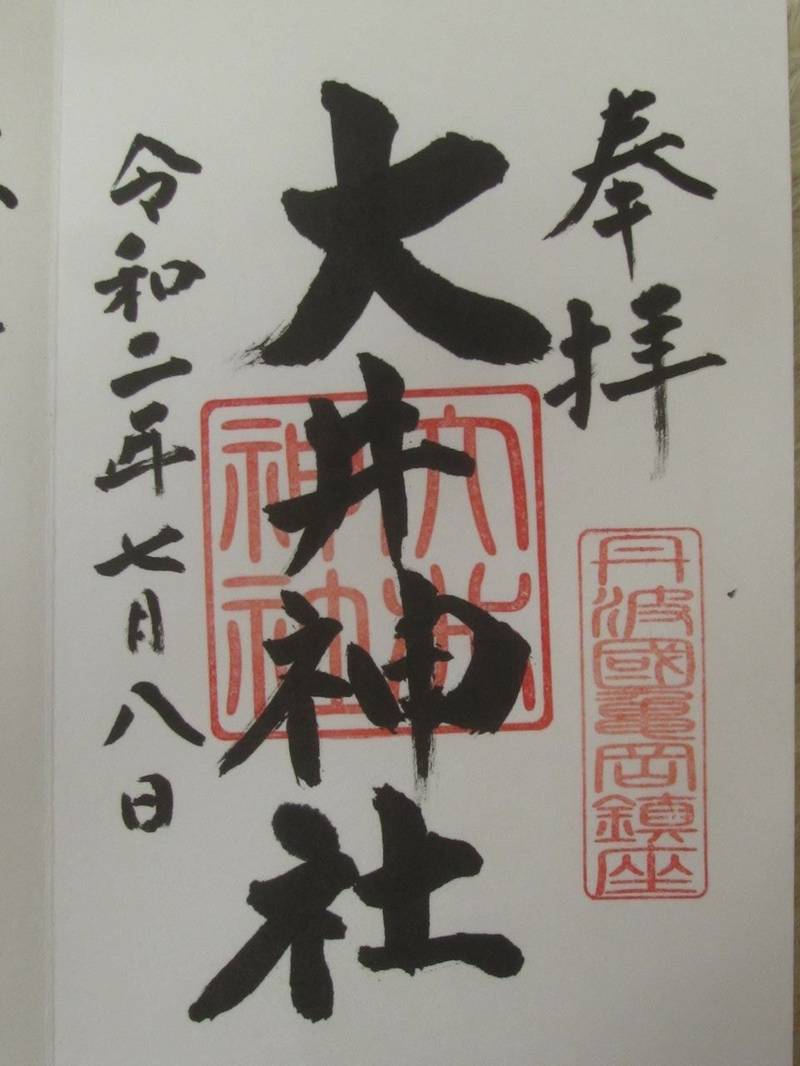 奉拝
丹波國亀岡鎮座
大井神社
大井神社
令和二年七月八日